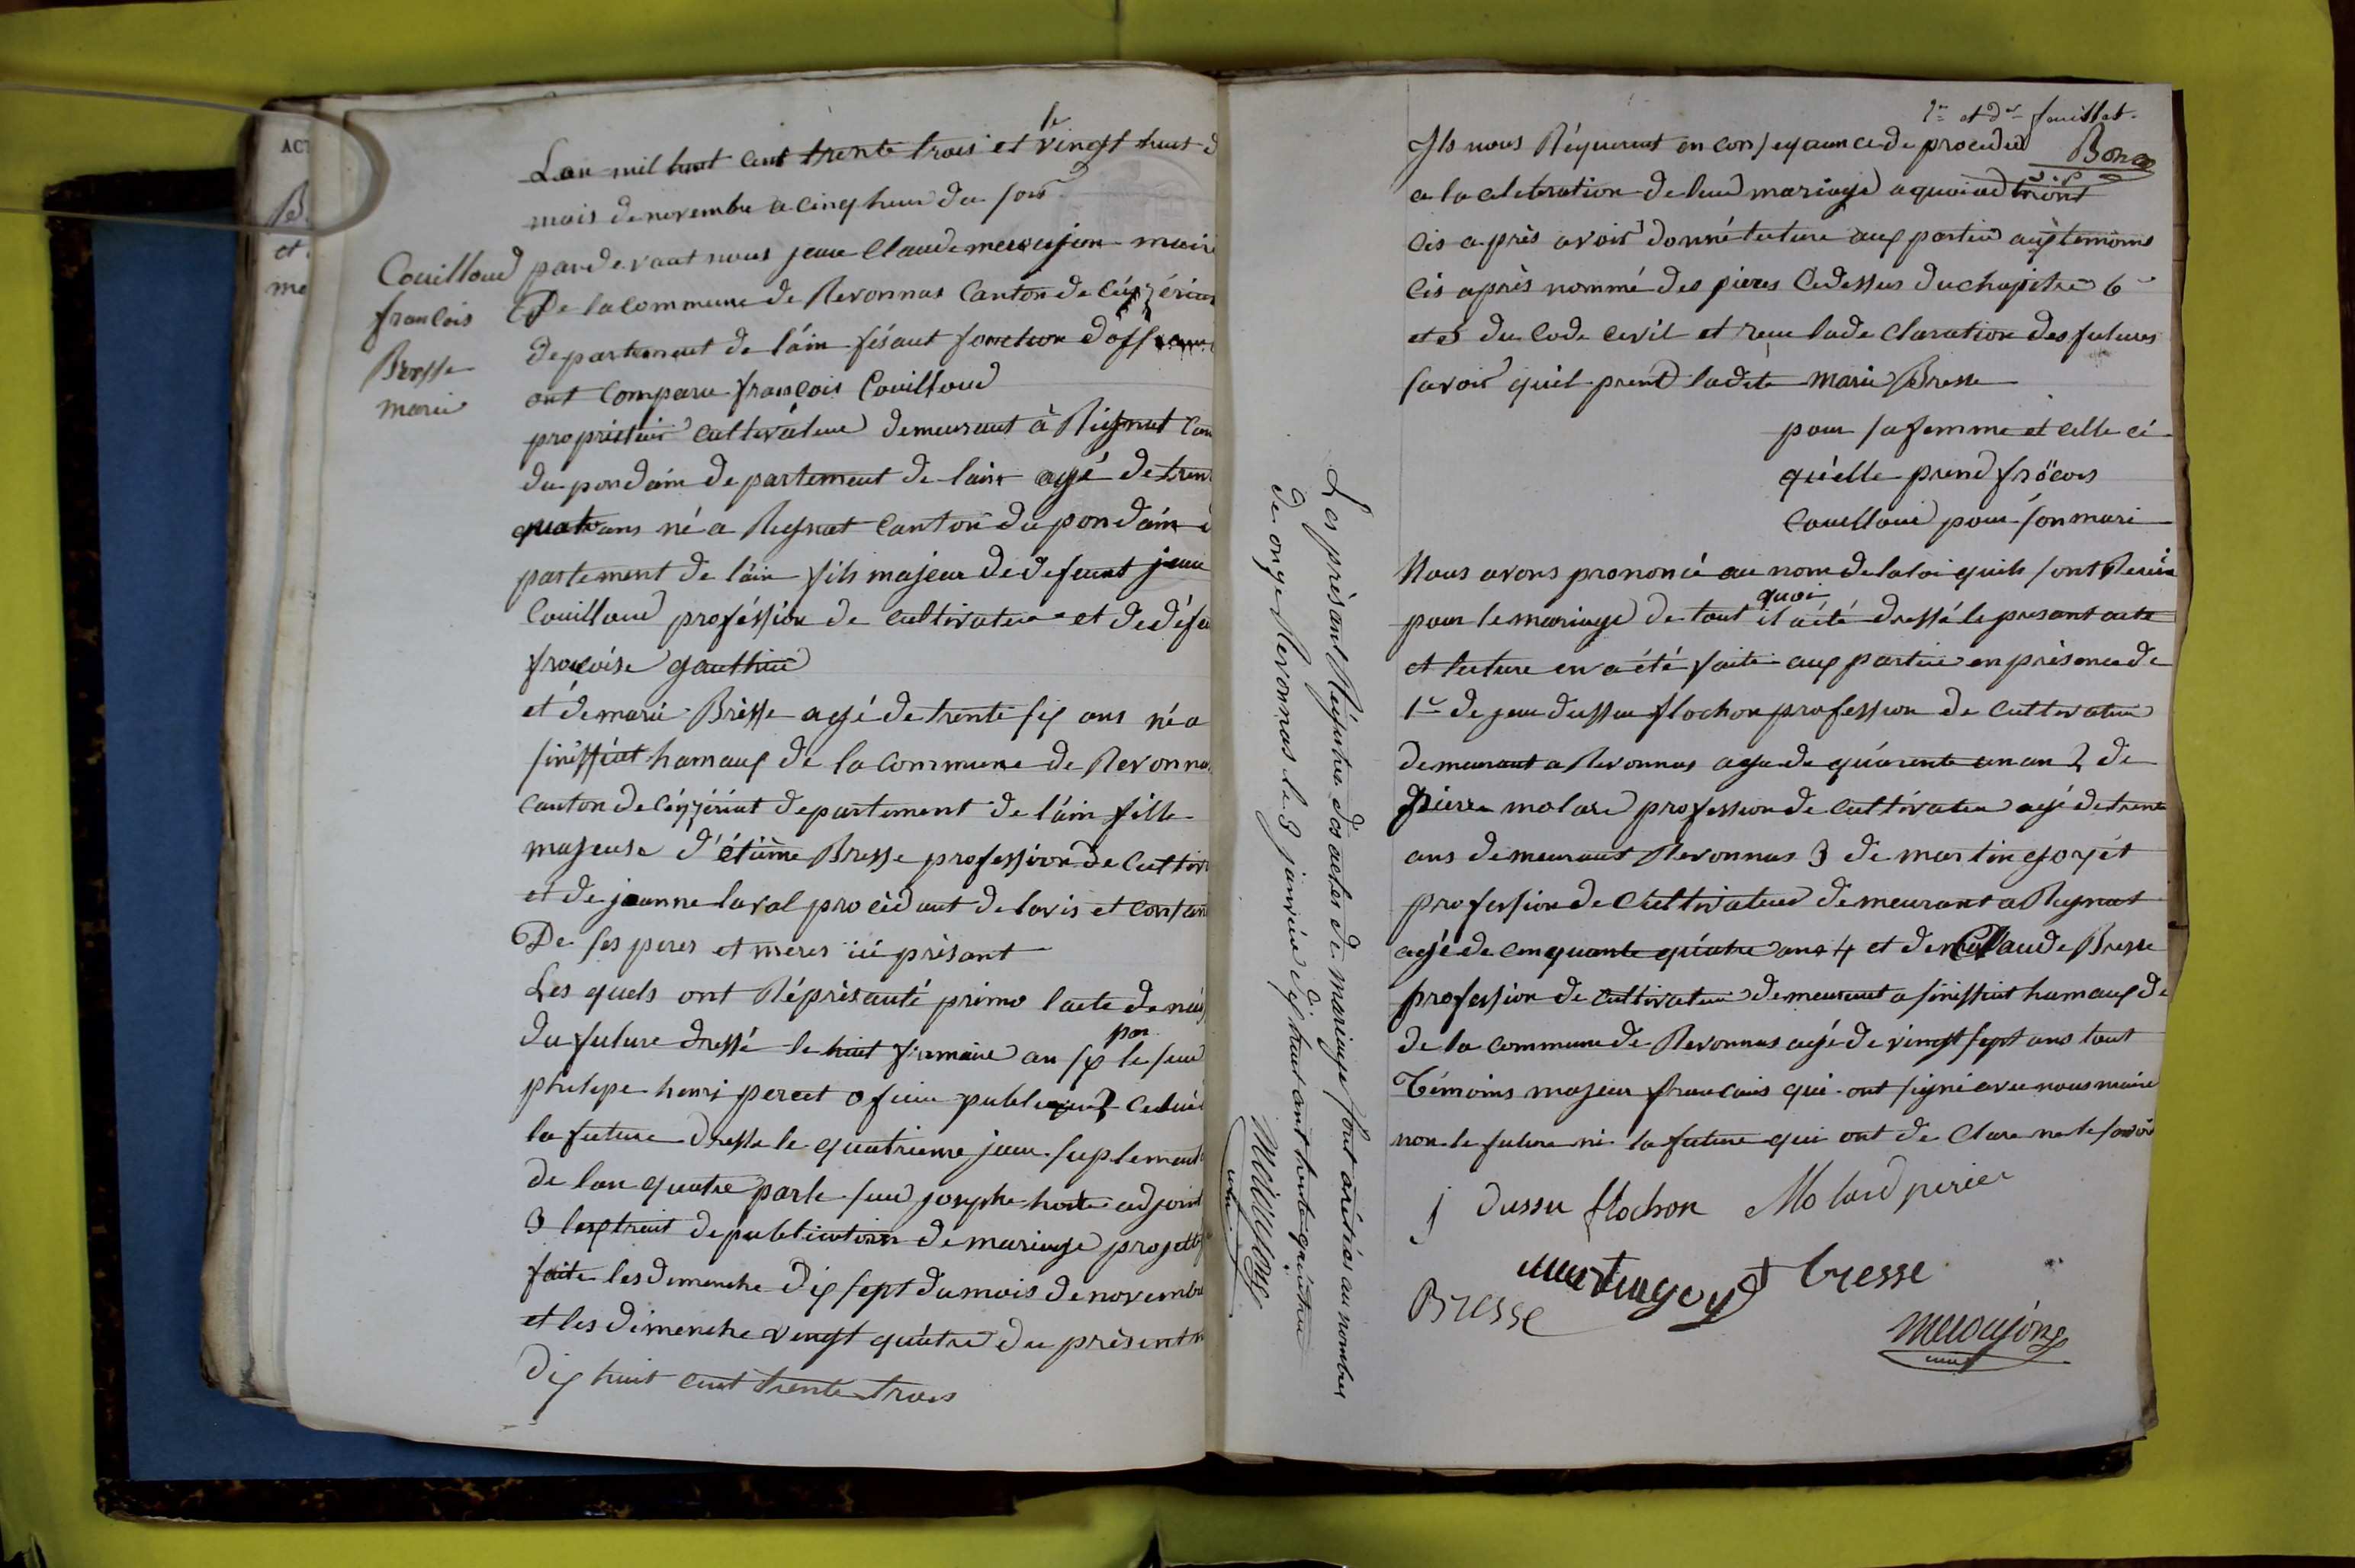 ACT
B
et
me
Couilloud
francois
Bresse
marie
le
Lan mil huit cent trente trois et vingt huit d
mois de novembre a cinq heure du soir
pardevant nous jean Claude mercujon maire
De la commune de Revonnas Canton de Céyzériat
departement de l'ain fésant fonction d'off
ont comparu francois Couilloud
propriétair cultivateur demeurant à Rignat Can
du pondain departement de lain agé de tren
quatr ans né a Rignat canton du pondain d
partement de l'ain fils majeur de defeunt jean
Couilloud proféssion de cultivateur et de défu
francoise gauthier
et de marie Bresse agé de trente six ans né a
sinissiat hamaux de la commune de Revonna
canton de Céyzériat departement de l'ain fille
majeuse d'étiéne Bresse profession de Cultiv
et de jeanne laval procédant de lavis et consan
De ses peres et meres ici présant
Les quels ont Réprésanté primo lacte de nais
du future dressé le huit frimaire an six par le sieur
philipe henri percet oficier publique 2 celui d
la future dressé le quatrieme jour suplement
de lan quatre par le sieur josephe hoste adjoint
3 lextrait de publication de mariage projetté
faite les dimenche dix sept du mois de novembre
et les dimenche vengt quatre du présent m
dix huit cent trente trois
Les présant Régistre des actes de mariage sont arétées au nombre
de onze Revonnas le 3 janvier dix huit cent trente quatre
Mercujon
maire
1er et dr feuillet
Bona
v.p.
Ils nous Réquerent en conseqaunce de proceder
a la celebration de leur mariage a quoi ad
cis après avoir donné lecture aux partie aux temoins
cis après nommé des pieces ci dessus du chapitre 6
et 5 du code civil et recu la de claration des futures
savoir quil prend ladite marie Bresse
pour sa femme et celle ci
qu'elle prend fröcois
Couilloud pour son mari
Nous avons prononcé au nom de la loi quils sont Reunis
pour le mariage de tout quoi il a été dressé le présant acte
et lecture en a été faite aux partie en présence de
1er de jean dussu flochon profession de cultivateur
demeurant a Revonnas agé de quarente un an 2 de
Pierre molard profession de cultivateur agé de trente
ans demeurant Revonnas 3 de martin goyét
profession de Cultivateur demeurant a Rignat
agé de cinquante quatre ans 4 et de Claude Bresse
profession de cultivateur demeurant a sinissiat hamaux de
de la commune de Revonnas agé de vingt sept ans tout
Témoins majeur francais qui ont signé avec nous maire
non le future ni la future qui ont de clare ne le savoir
j dussu flochon Molard pierre
martin goyet bresse
Bresse
mercujon
maire